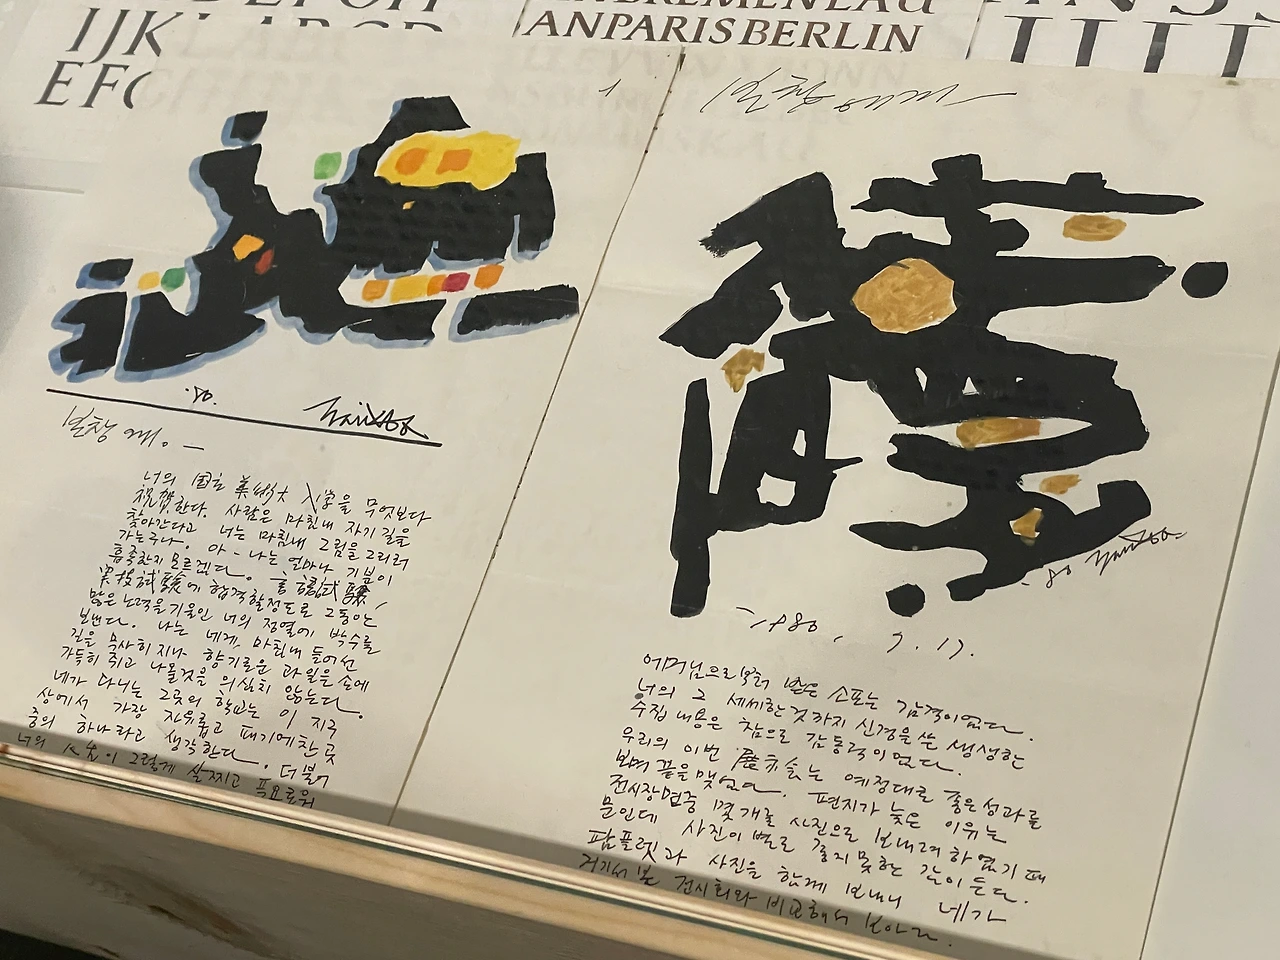 IJK
EFG
ANPARISBERLIN
'80.
병창에게. —
너의 国立 美術大 入学을 무엇보다
祝賀한다. 사람은 마침내 자기 길을
찾아간다고 너는 마침내 그림을 그리러
가는구나. 아 - 나는 얼마나 기쁨이
흡족한지 모르겠다.
実技試験에 합격할 정도로 그동안
많은 노력을 기울인 너의 정열에 박수를
보낸다. 나는 네게, 마침내 들어선
길을 무사히 지나 향기로운 과일을 손에
가득히 쥐고 나올것을 의심치 않는다.
네가 다니는 그곳의 학교는 이 지구
상에서 가장 자유롭고 패기에 찬 곳
중의 하나라고 생각한다. 더불어
너의 人生이 그렇게 살찌고 풍요로워
1
병창에게 —
'80
1980. 9. 17.
어머님으로부터 받은 소포는 감격이었다.
너의 그 세세한것까지 신경을 쓴 생생한
수집 내용은 참으로 감동적이었다.
우리의 이번 展示会는 예정대로 좋은 성과를
보며 끝을 맺었다. 편지가 늦은 이유는
전시장면중 몇 개를 사진으로 보내려 하였기 때
문인데 사진이 별로 좋지 못한 감이 든다.
팜플렛과 사진을 함께 보내니 네가
거기서 본 전시회와 비교해서 보아라.